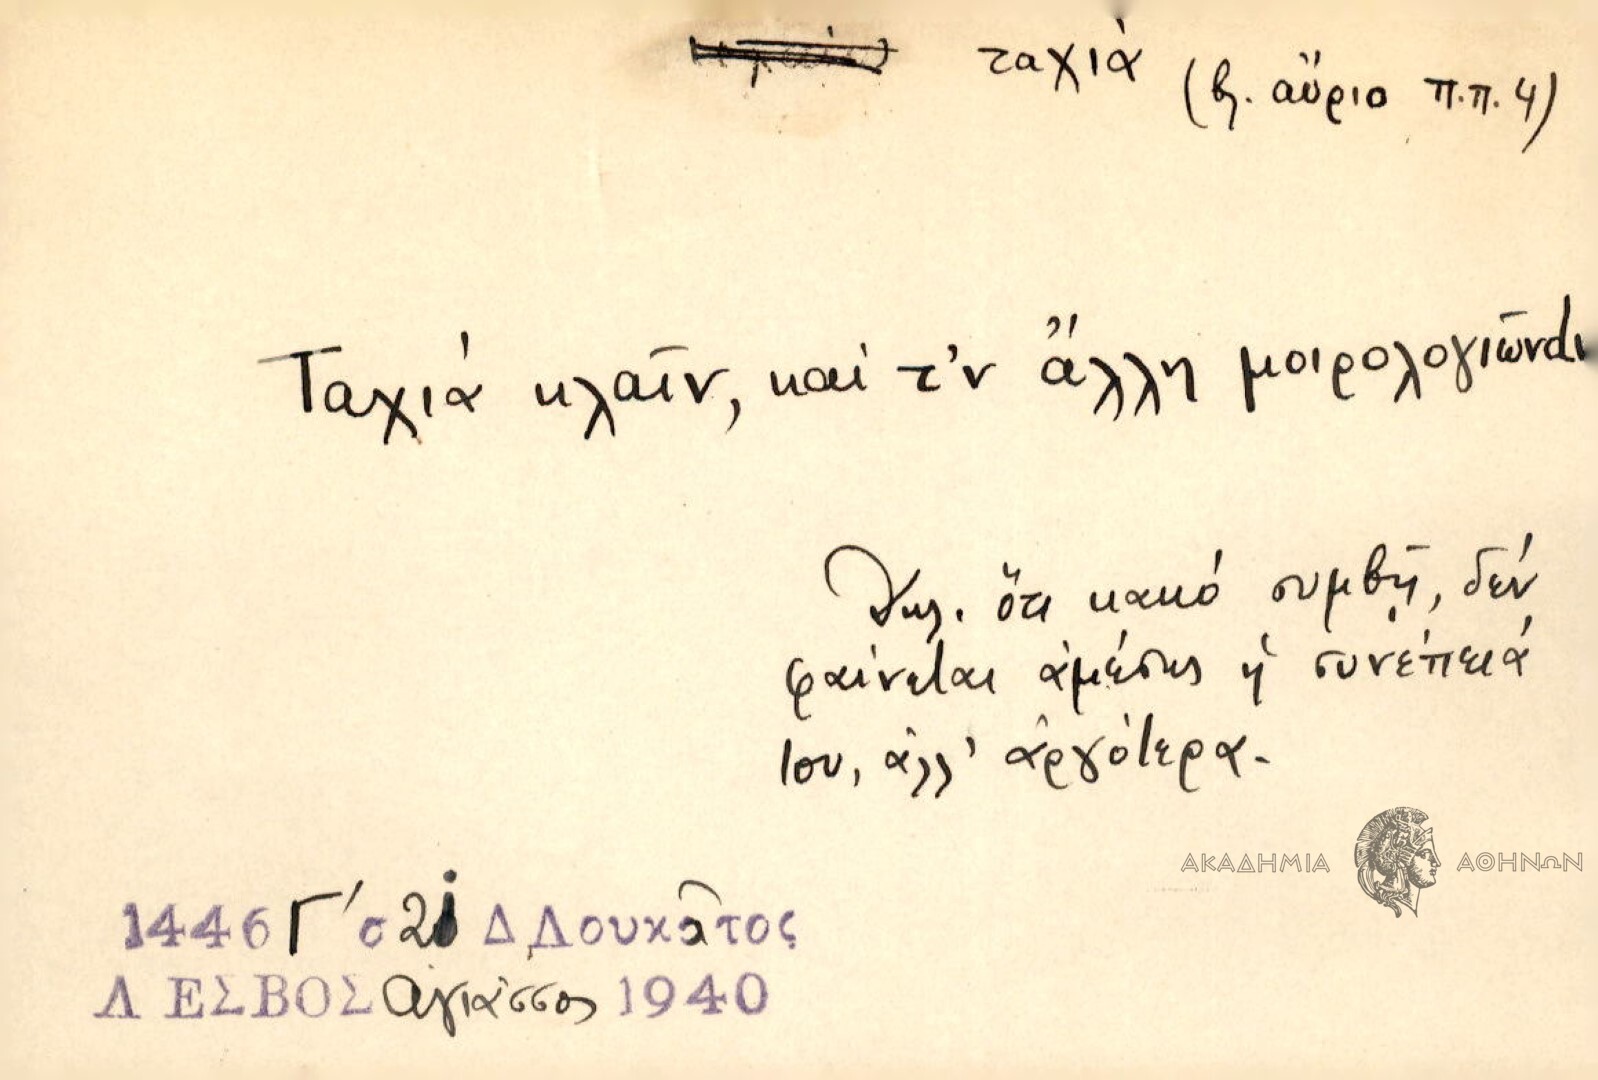 ταχιά (βλ. αὔριο π.π. 4)
Ταχιά κλαῖν, καί τ'ν ἄλλη μοιρολογιῶνται
Δηλ. ὅτι κακό συμβῇ, δέν
φαίνεται ἀμέσως ἡ συνέπειά
του, ἀλλ' ἀργότερα.
ΑΚΑΔΗΜΙΑ ΑΘΗΝΩΝ
1446 Γ' σ 21 Δ Λουκᾶτος
ΛΕΣΒΟΣ Ἀγιάσσος 1940